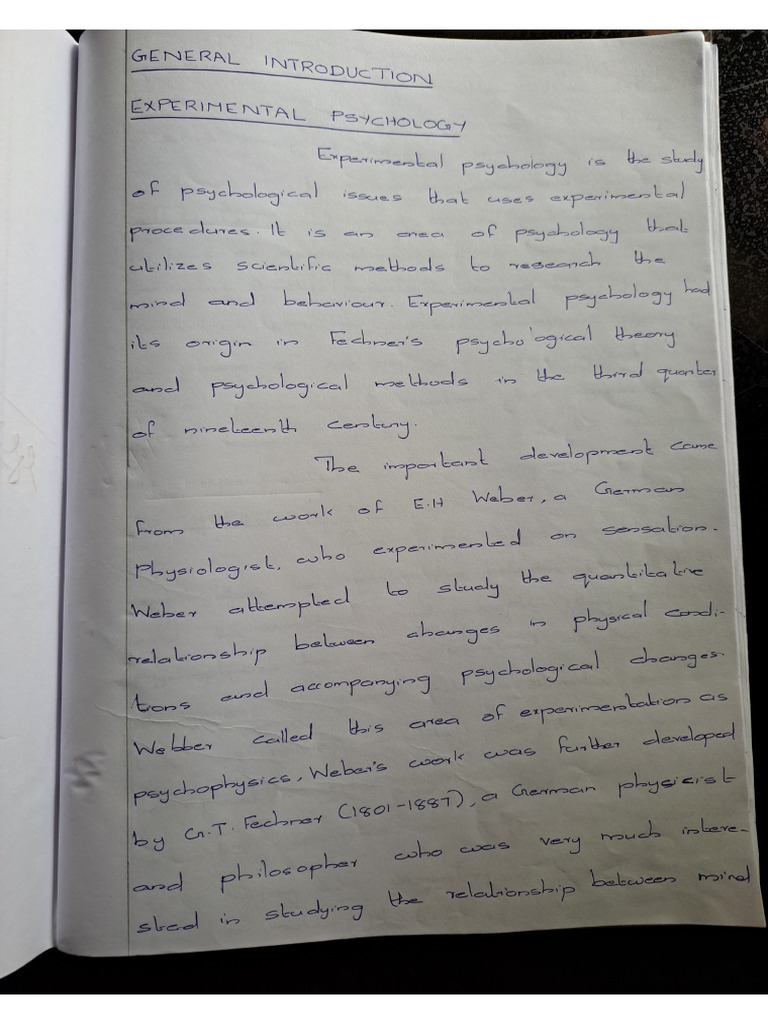 GENERAL INTRODUCTION
EXPERIMENTAL PSYCHOLOGY
Experimental psychology is the study
of psychological issues that uses experimental
procedures. It is an area of psychology that
utilizes scientific methods to research the
mind and behaviour. Experimental psychology had
its origin in Fechner's psychological theory
and psychological methods in the third quarter
of nineteenth century.
The important development came
from the work of E.H Weber, a German
Physiologist, who experimented on sensation.
Weber attempted to study the quantitative
relationship between changes in physical condi-
tions and accompanying psychological changes.
Webber called this area of experimentation as
psychophysics, Weber's work was further developed
by G.T. Fechner (1801-1887), a German physicist
and philosopher who was very much intere-
sted in studying the relationship between mind